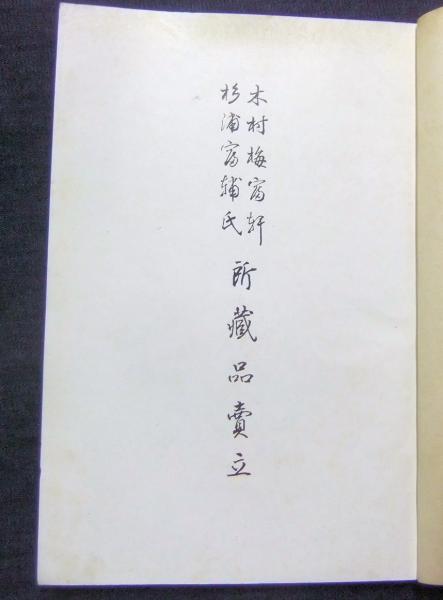 木村梅窗軒
杉浦富輔氏
所藏品賣立